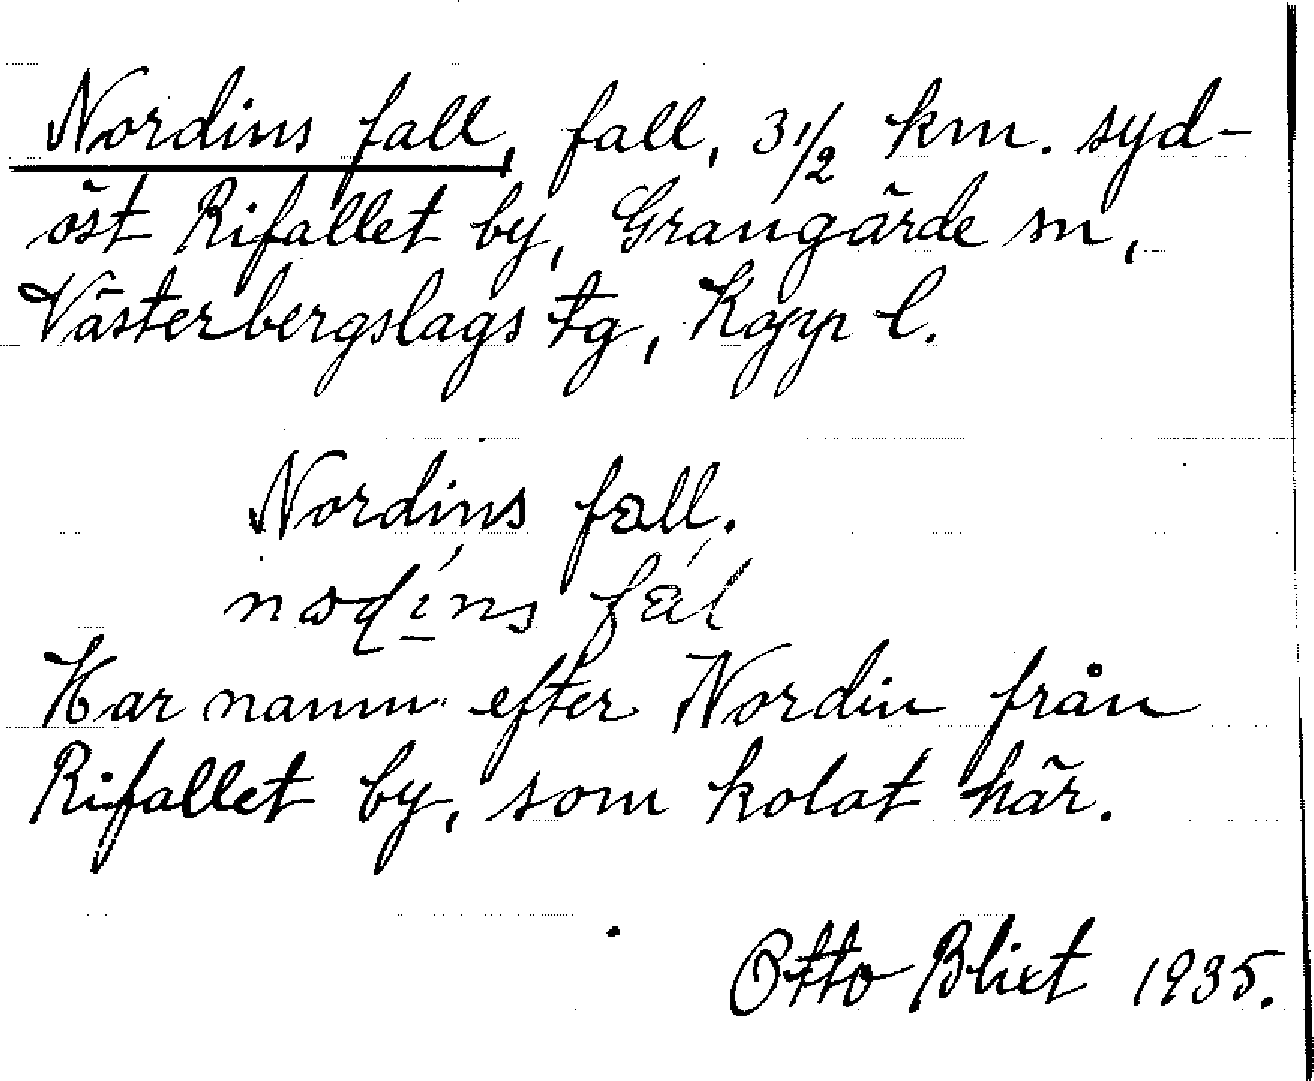 Nordins fall, fall, 3 1/2 km. syd-
öst Rifallet by, Grangärde sn,
Västerbergslags tg, Kopp l.
Nordins fall.
Har namn efter Nordin från
Rifallet by, som kolat här.
Otto Blixt 1935.